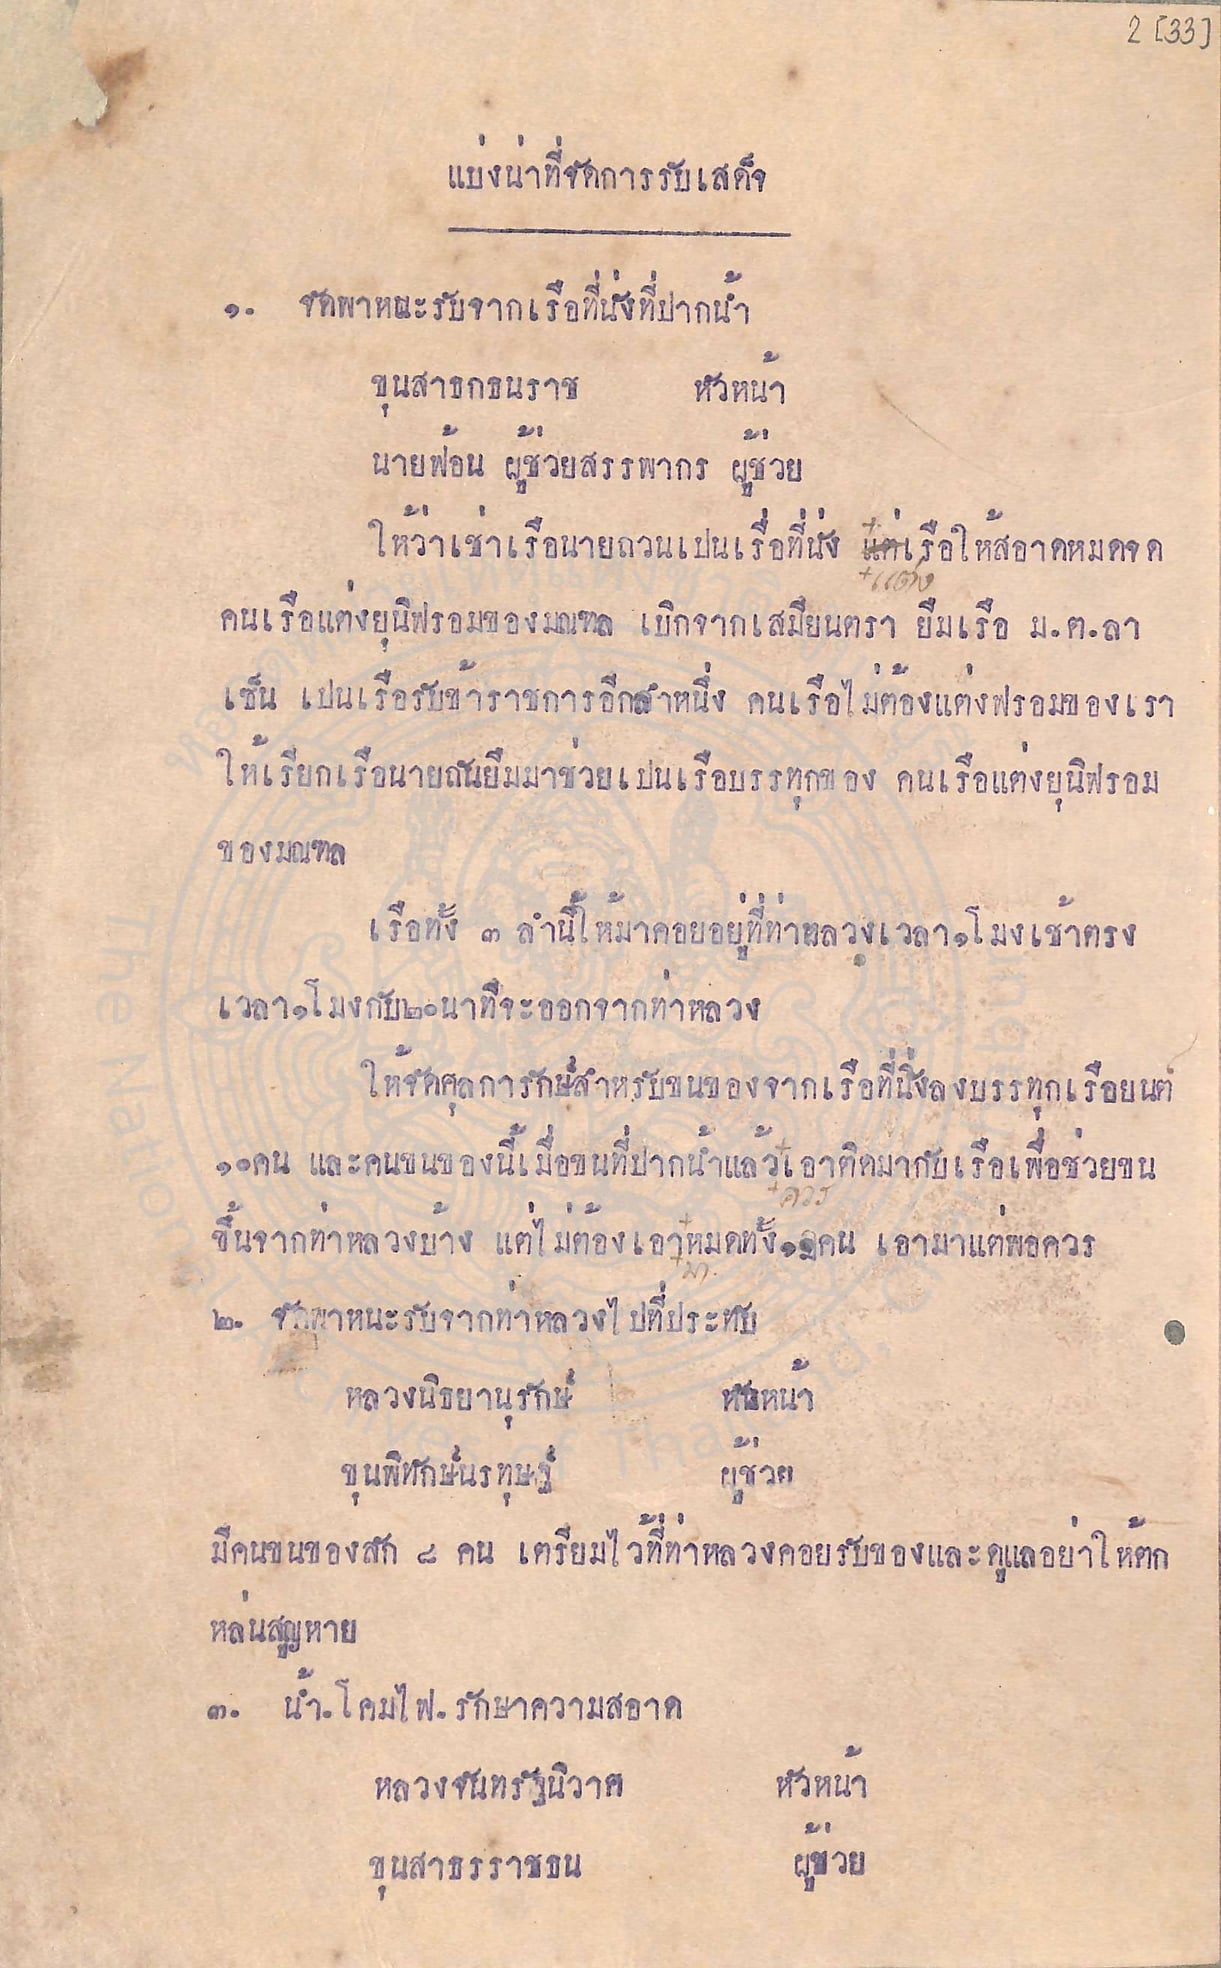 2 [33]
แบ่งน่าที่จัดการรับเสด็จ
๑. จัดพาหนะรับจากเรือที่นั่งที่ปากน้ำ
ขุนสาธกธนราช หัวหน้า
นายฟ้อน ผู้ช่วยสรรพากร ผู้ช่วย
ให้ว่าเช่าเรือนายถวนเปนเรื่อที่นั่ง แต่เรือให้สอาดหมดจด
+แต่ง
คนเรือแต่งยุนิฟรอมของมณฑล เบิกจากเสมียนตรา ยืมเรือ ม.ต.ลา
เซ็น เปนเรือรับข้าราชการอีกลำหนึ่ง คนเรือไม่ต้องแต่งฟรอมของเรา
ให้เรียกเรือนายถันยืมมาช่วยเปนเรือบรรทุกของ คนเรือแต่งยุนิฟรอม
ของมณฑล
เรือทั้ง ๓ ลำนี้ให้มาคอยอยู่ที่ท่าหลวงเวลา๑โมงเช้าตรง
เวลา๑โมงกับ๒๐นาทีจะออกจากท่าหลวง
ให้จัดศุลการักษ์สำหรับขนของจากเรือที่นั่งลงบรรทุกเรือยนต์
๑๐คน และคนขนของนี้เมื่อขนที่ปากน้ำแล้วเอาติดมากับเรือเพื่อช่วยขน
+ควร
ขึ้นจากท่าหลวงบ้าง แต่ไม่ต้องเอาหมดทั้ง๑๐คน เอามาแต่พอควร
+มา
๒. จัดพาหนะรับจากท่าหลวงไปที่ประทับ
หลวงนิธยานุรักษ์ หัวหน้า
ขุนพิทักษ์นรทุษฐ์ ผู้ช่วย
มีคนขนของสัก ๘ คน เตรียมไว้ที่ท่าหลวงคอยรับของและดูแลอย่าให้ตก
หล่นสูญหาย
๓. น้ำ.โคมไฟ.รักษาความสอาด
หลวงจันทรัฐนิวาศ หัวหน้า
ขุนสาธรราชธน ผู้ช่วย